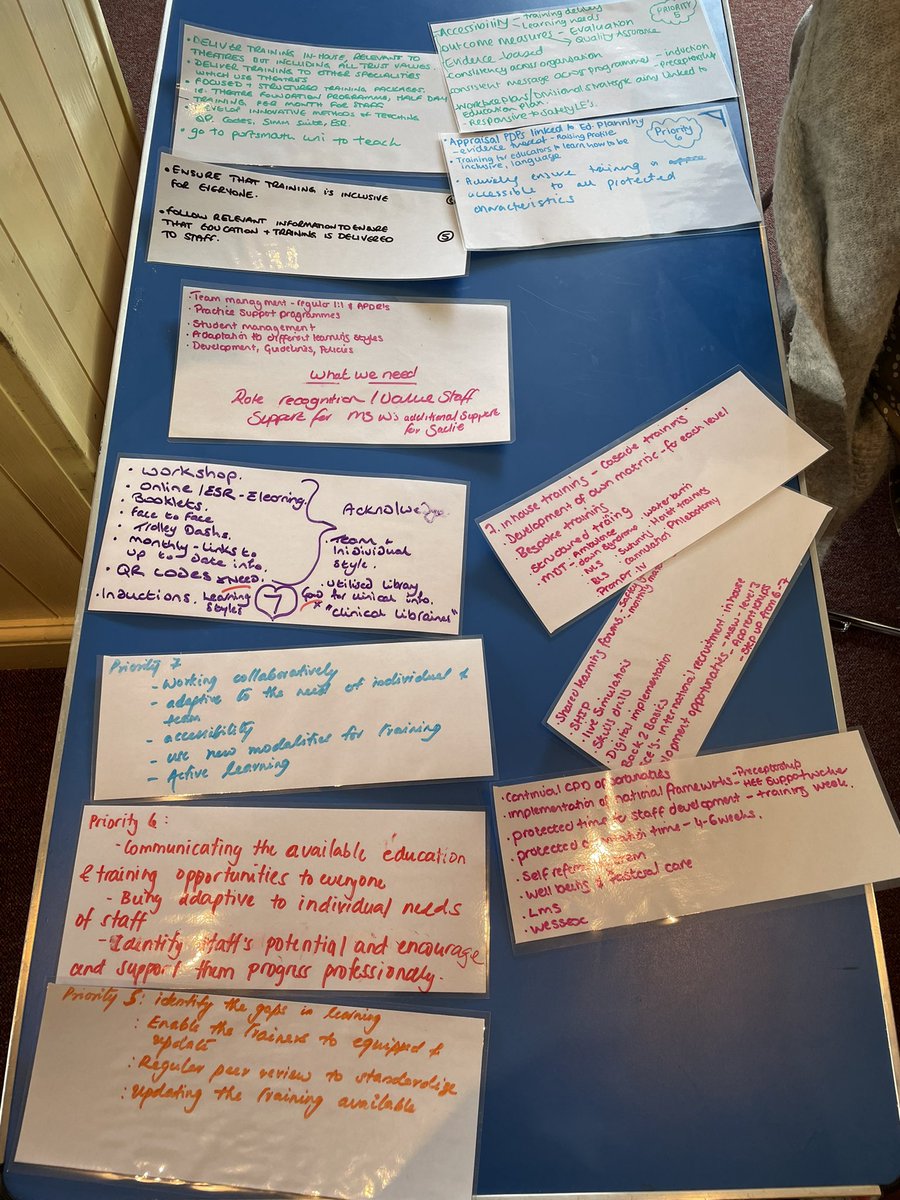 • DELIVER TRAINING IN-HOUSE, RELEVANT TO
THEATRES BUT INCLUDING ALL TRUST VALUES.
• DELIVER TRAINING TO OTHER SPECIALITIES
WHICH USE THEATRES
• FOCUSED & STRUCTURED TRAINING PACKAGES.
IE. THEATRE FOUNDATION PROGRAMME, HALF DAY
TRAINING PER MONTH FOR STAFF
DEVELOP INNOVATIVE METHODS OF TEACHING
QR CODES, SIMM SUITE, ESR
• go to portsmouth uni to teach
PRIORITY 5
Accessibility - training delivery
- Learning needs
outcome measures - Evaluation
Quality Assurance
Evidence-based
Consistency across organisation
consistent message across programmes - induction
- Preceptorship
Workforce Plans/Divisional strategic aims linked to
education plan.
- Responsive to safety
Priority 6
• Appraisal PDPs linked to Ed Planning
- evidence - Raising Profile
• Training for educators to learn how to be
inclusive, language
• Actively ensure training is
accessible to all protected
characteristics
• ENSURE THAT TRAINING IS INCLUSIVE
FOR EVERYONE.
• FOLLOW RELEVANT INFORMATION TO ENSURE
THAT EDUCATION + TRAINING IS DELIVERED
TO STAFF.
5
• Team managment - regular 1:1 &
• Practice Support programmes
• Student management
• Adaptation to different learning styles
• Development, Guidelines, Policies
What we need
Role recognition / Value Staff
Support for MSW's additional support
for Sadie
• Workshop.
• Online / ESR - Elearning.
• Booklets.
• Face to Face.
• Trolley Dashs.
• monthly - Links to
up to date info.
• QR CODES
• Inductions. Learning
styles
7
Team +
Inidividual
style.
• Utilised Library
for clinical info.
"Clinical Librainer"
7. In house training - cascade training
• Development of own matrix - for each level
• Bespoke training
• Structured traiing
• MDT - Ambulance
NLS
BLS
Prompt - IV
• waterbirth
• Suturing
• Hoist training
• cannulation
• Phlebotomy
• Shared learning forums
• SHIP
• Live Simulations
Skills drills
Digital implementation
Back 2 Basics
international recruitment in house
opportunities - MSW - level 3
- Apprenticeships
- Step up from 6-7
Priority 7
- Working collaboratively
- adaptive to the need of individual &
team
- accessibility
- use new modalities for Training
- Active learning
• Continual CPD
• implementation of national frameworks - Preceptorship
- HEE Support worker
• protected time for staff development - training week.
• protected time - 4-6 weeks.
• Self
• Well being & pastoral care
• LMS
• Wessesx
Priority 6:
- Communicating the available education
& training opportunities to everyone
- Being adaptive to individual needs
of staff
- Identify staff's potential and encourage
and support them progress professionally.
Priority 5: identify the gaps in learning
: Enable the Trainers to equipped &
update
: Regular peer review to standardise
: Updating the Training available